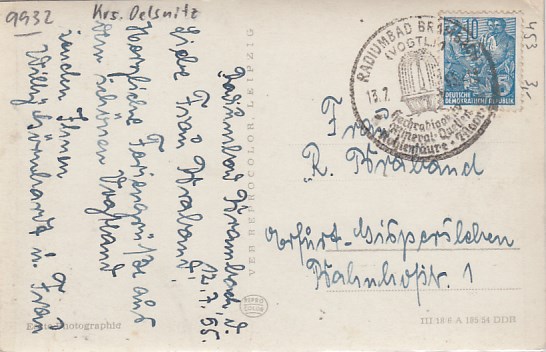 9932
Krs. Oelsnitz
Radiumbad Brambach d.
12.7.55.
Liebe Frau Braband!
Herzliche Feriengrüße aus
dem schönen Vogtland
senden Ihnen
Willy u. Frau
Echte Photographie
VEB REPROCOLOR, LEIPZIG
RADIUMBAD BRAMBACH
(VOGTL.)
13.7.
Hochradioaktive
Mineral-Quellen
Kohlensäure-
10
DEUTSCHE
DEMOKRATISCHE REPUBLIK
453 3,-
Frau
R. Braband
Erfurt-Gispersleben
Bahnhofstr. 1
III 18 6 A 185 54 DDR